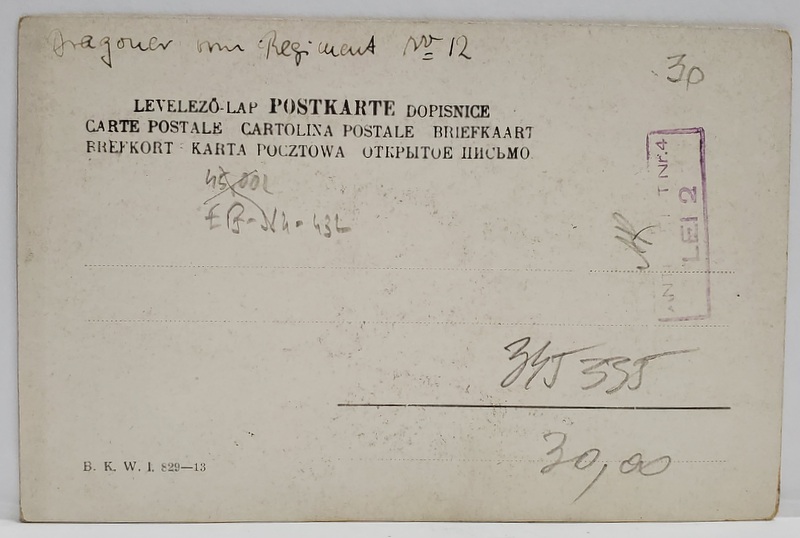 Dragoner vom Regiment No 12
30
LEVELEZŐ-LAP POSTKARTE DOPISNICE
CARTE POSTALE CARTOLINA POSTALE BRIEFKAART
BREFKORT KARTA POCZTOWA ОТКРЫТОЕ ПИСЬМО
45,00
T Nr. 4
LEI 2
345 335
30,00
B. K. W. I. 829—13